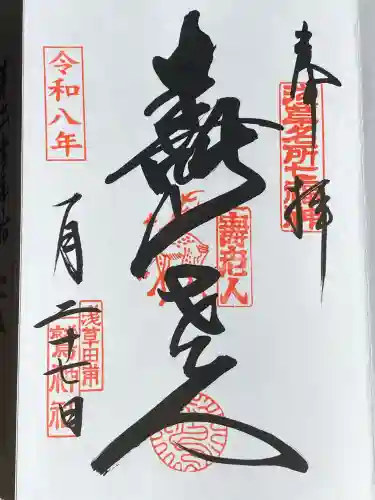 奉拝
浅草名所七福神
寿老人
寿老人
令和八年
一月二十七日
浅草田甫
鷲神社